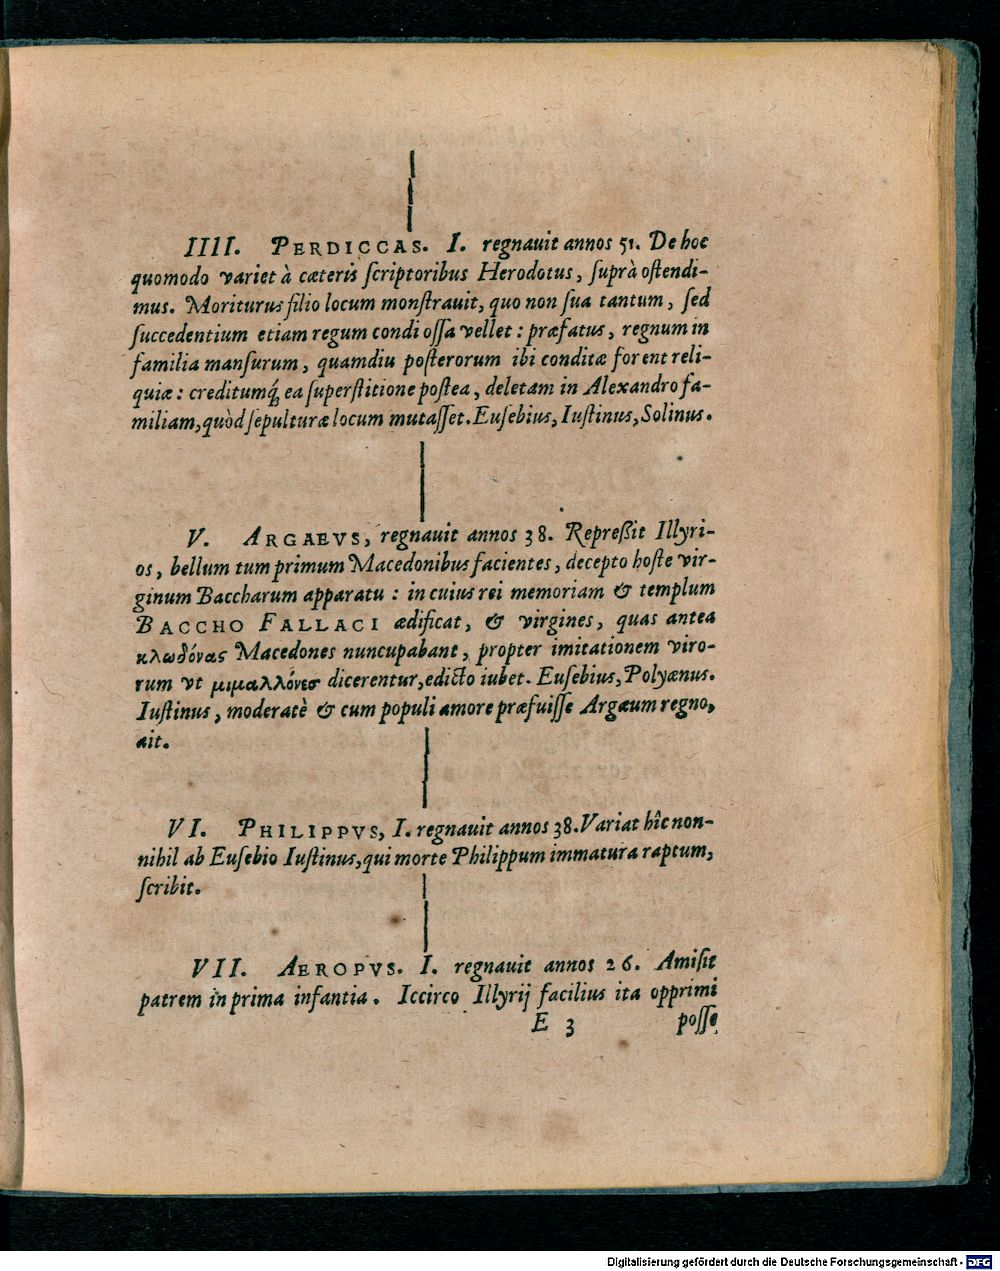 IIII. PERDICCAS. I. regnauit annos 51. De hoc
quomodo variet à cæteris scriptoribus Herodotus, suprà ostendi-
mus. Moriturus filio locum monstrauit, quo non sua tantum, sed
succedentium etiam regum condi ossa vellet: præfatus, regnum in
familia mansurum, quamdiu posterorum ibi conditæ forent reli-
quiæ: creditumq́; ea superstitione postea, deletam in Alexandro fa-
miliam, quòd sepulturæ locum mutasset. Eusebius, Iustinus, Solinus.
V. ARGAEVS, regnauit annos 38. Repreßit Illyri-
os, bellum tum primum Macedonibus facientes, decepto hoste vir-
ginum Baccharum apparatu: in cuius rei memoriam & templum
BACCHO FALLACI ædificat, & virgines, quas antea
κλωδόνας Macedones nuncupabant, propter imitationem viro-
rum vt μιμαλλόνες dicerentur, edicto iubet. Eusebius, Polyænus.
Iustinus, moderatè & cum populi amore præfuisse Argæum regno,
ait.
VI. PHILIPPVS, I. regnauit annos 38. Variat hîc non-
nihil ab Eusebio Iustinus, qui morte Philippum immatura raptum,
scribit.
VII. AEROPVS. I. regnauit annos 26. Amisit
patrem in prima infantia. Iccirco Illyrij facilius ita opprimi
E 3 posse
Digitalisierung gefördert durch die Deutsche Forschungsgemeinschaft - DFG